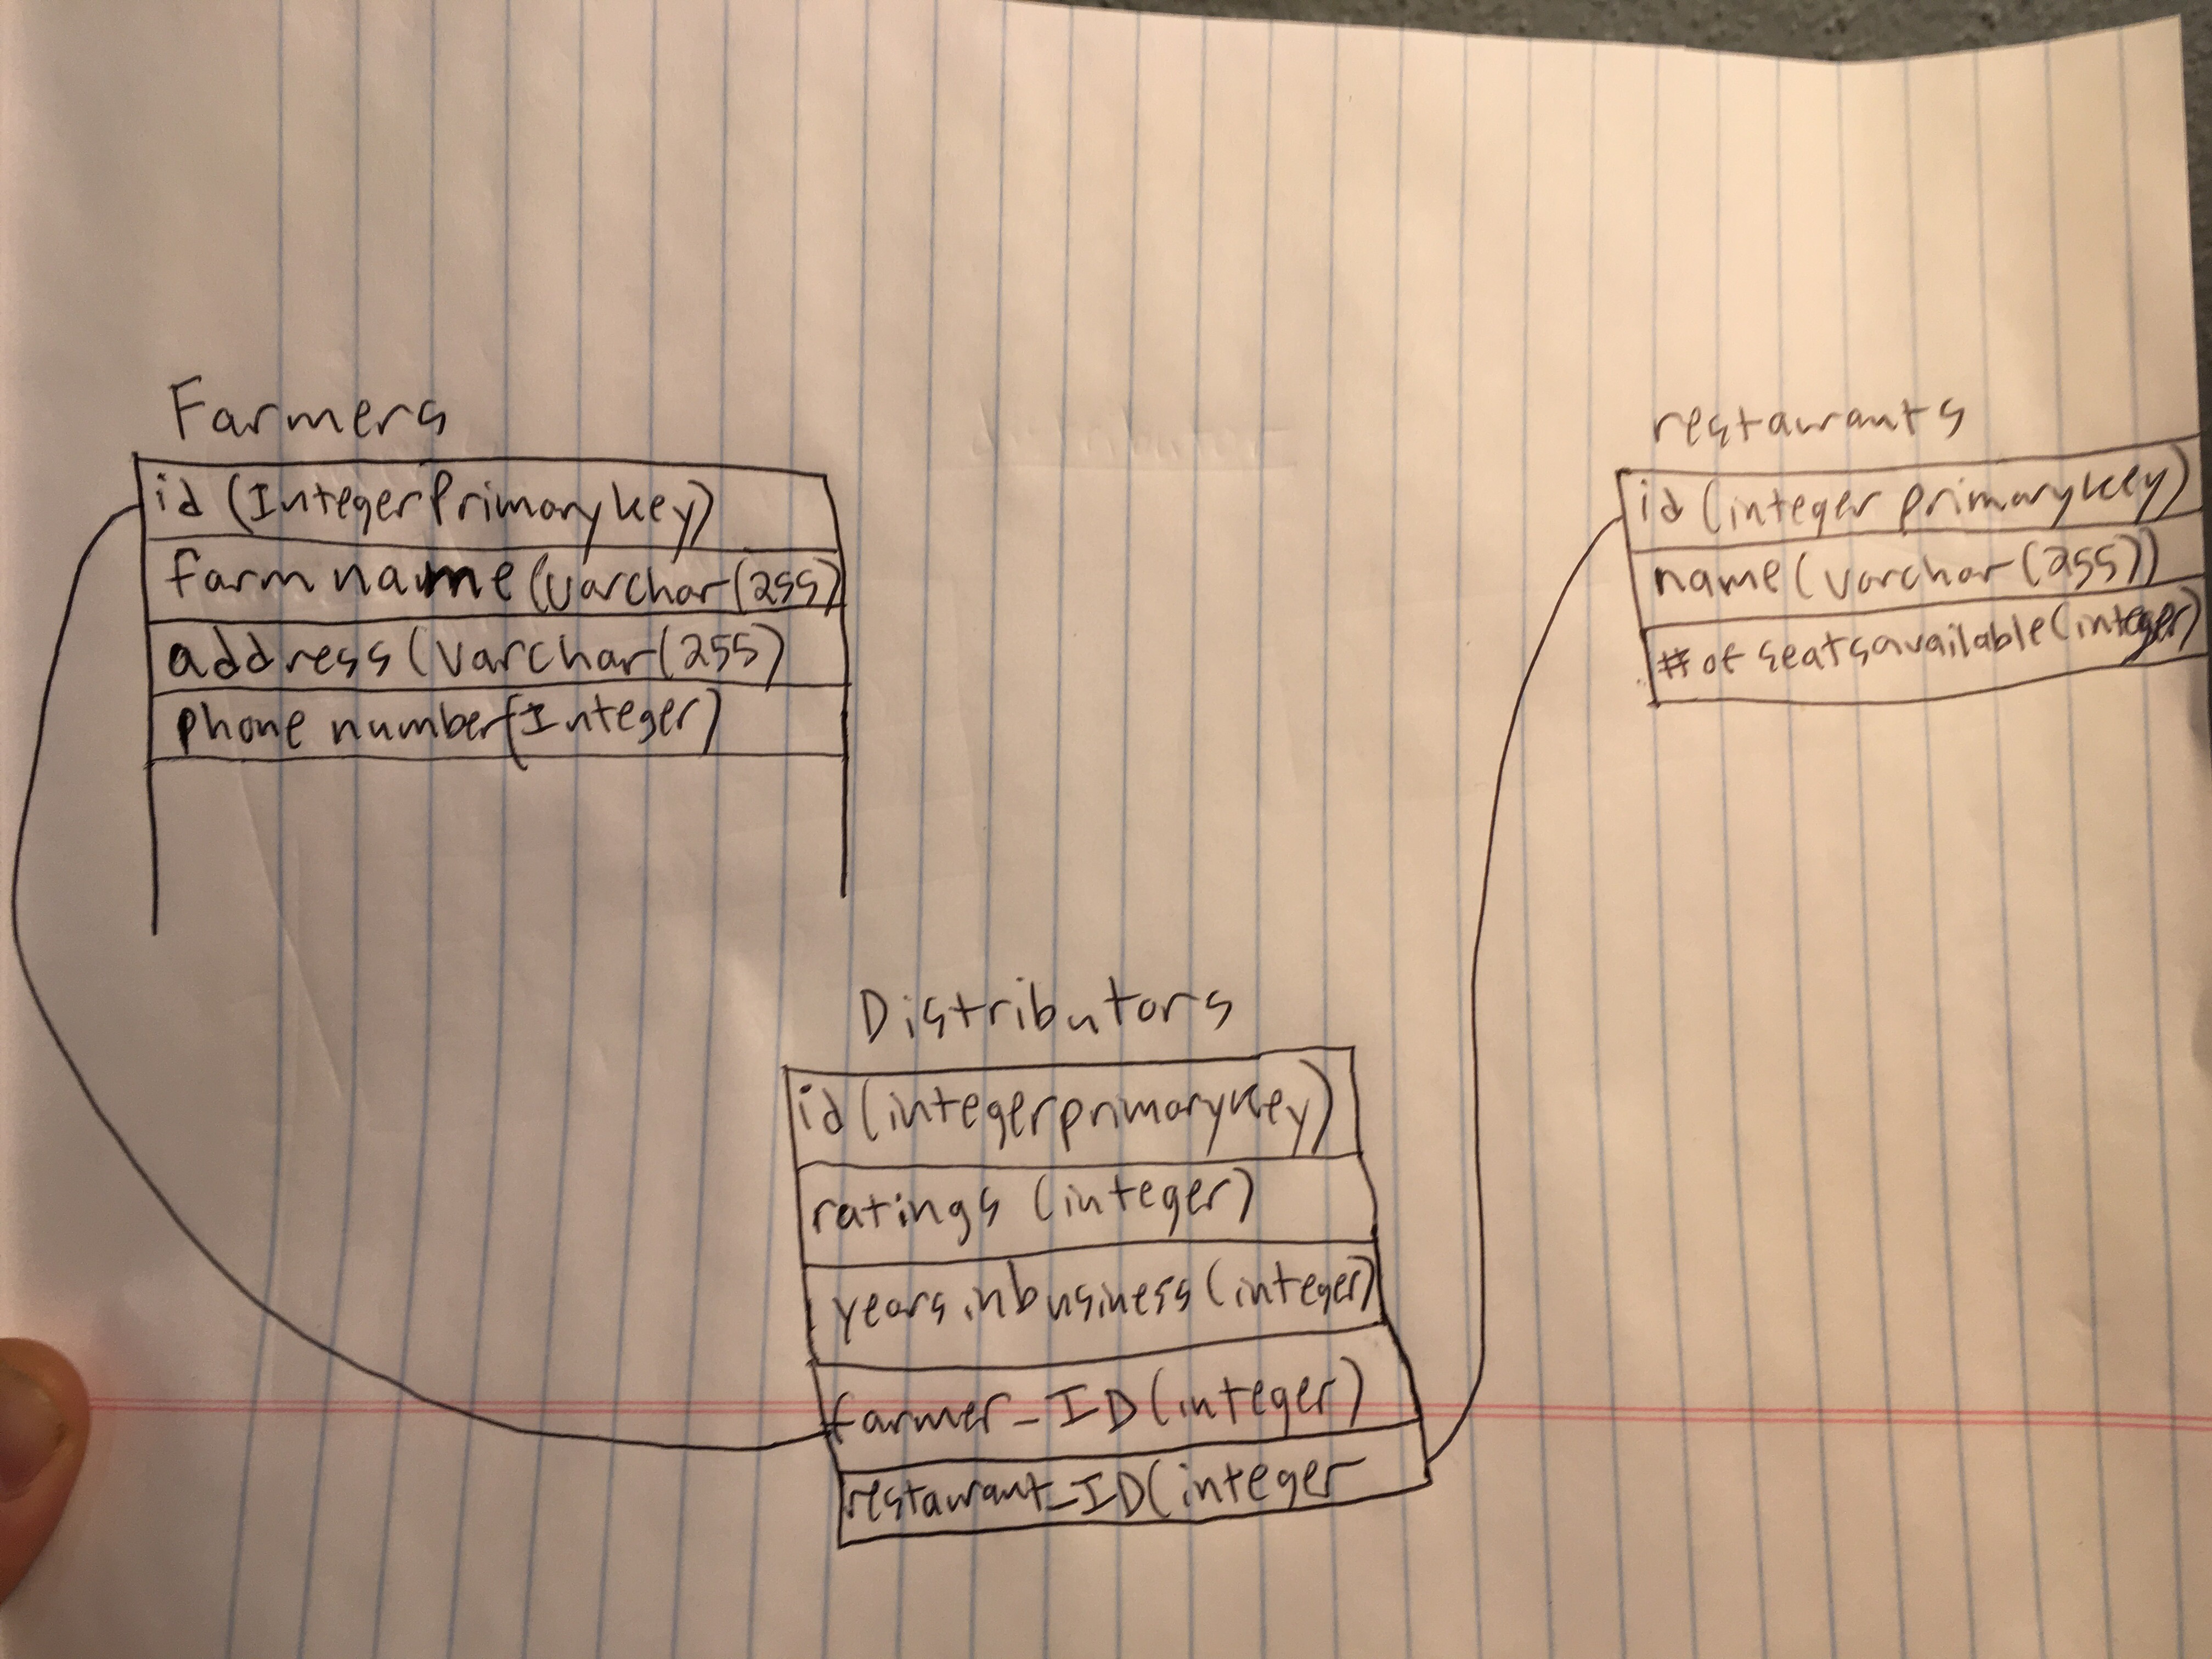 Farmers
id (Integer Primary key)
farm name (varchar(255)
address (varchar(255)
phone number (Integer)
restaurants
id (integer primary key)
name (varchar (255))
# of seats available (integer)
Distributors
id (integer primary key)
ratings (integer)
years in business (integer)
farmer_ID (integer)
restaurant_ID (integer